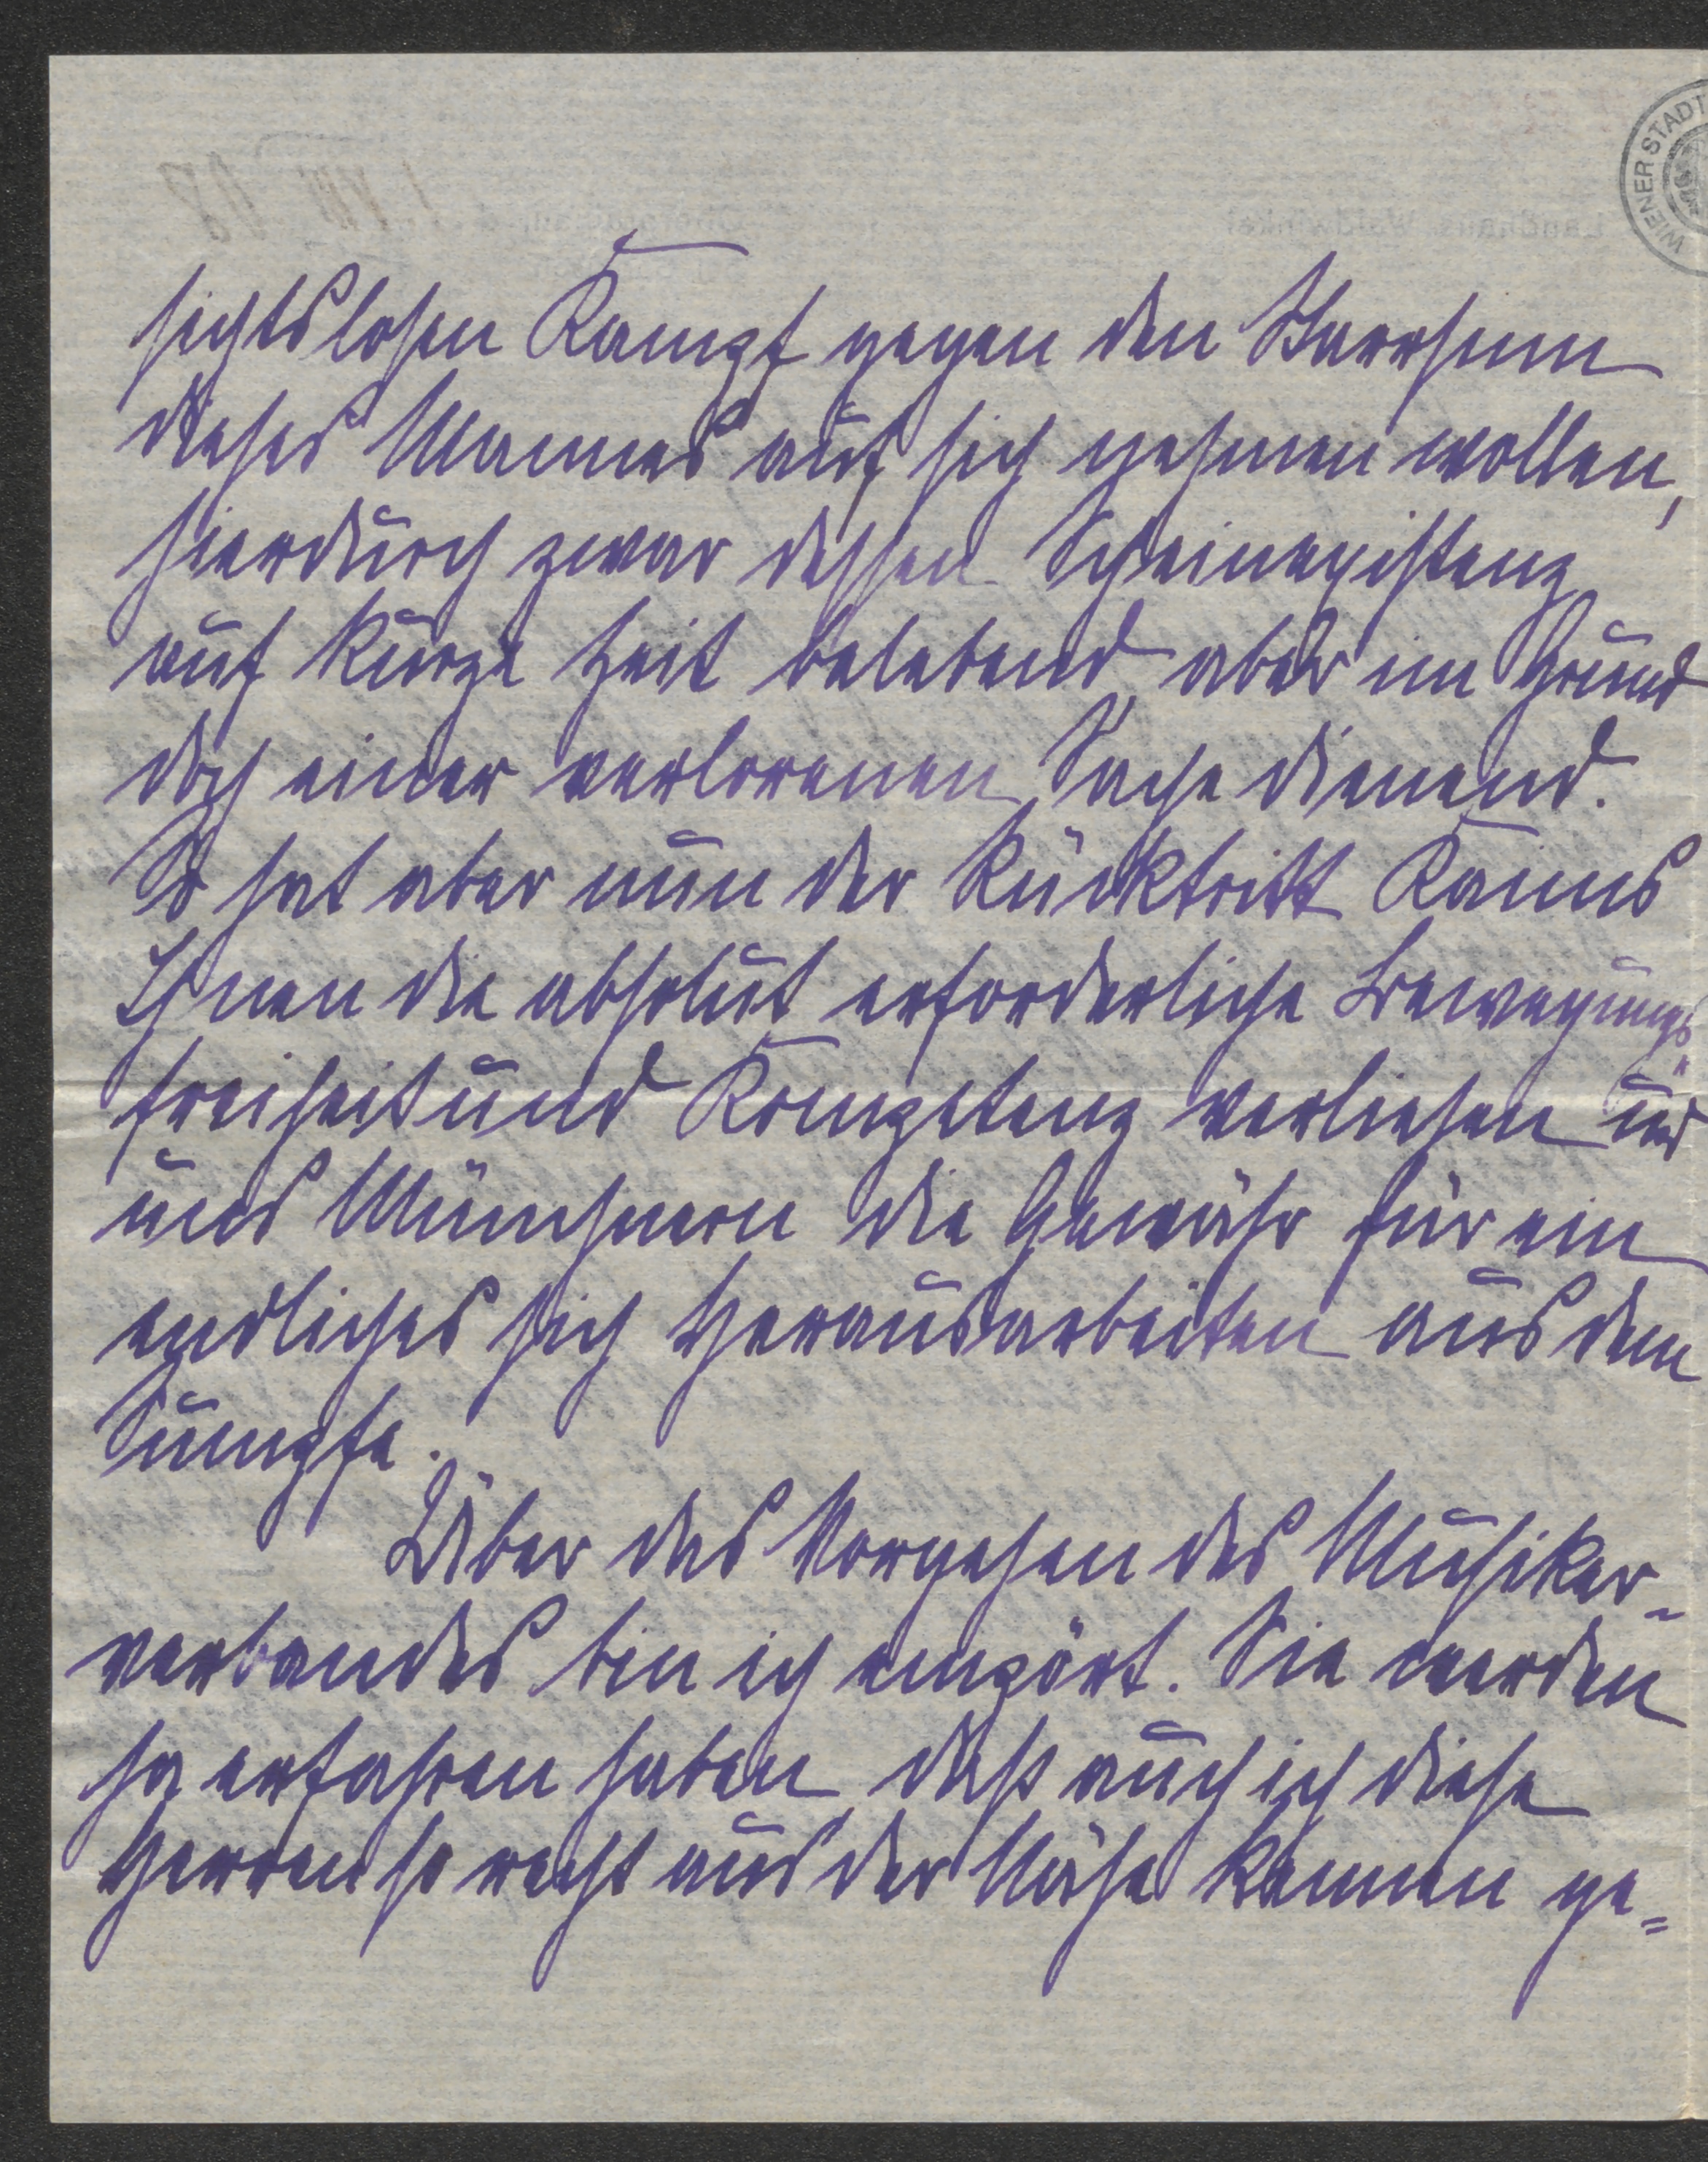 WIENER STADT
sichtslosen Kampf gegen den Starrsinn
dieses Mannes auf sich nehmen wollen,
hierdurch zwar dessen Scheinexistenz
auf kurze Zeit belebend, aber im Grund
doch einer verlorenen Sache dienend.
So hat aber nun der Rücktritt Kaims
Ihnen die absolut erforderliche Bewegungs=
freiheit und Kompetenz verliehen und
uns Münchnern die Gewähr für ein
endliches sich Herausarbeiten aus dem
Sumpfe.
Über das Vorgehen des Musiker-
verbandes bin ich empört. Sie werden
ja erfahren haben daß auch ich diese
Herren so recht aus der Nähe kennen ge=